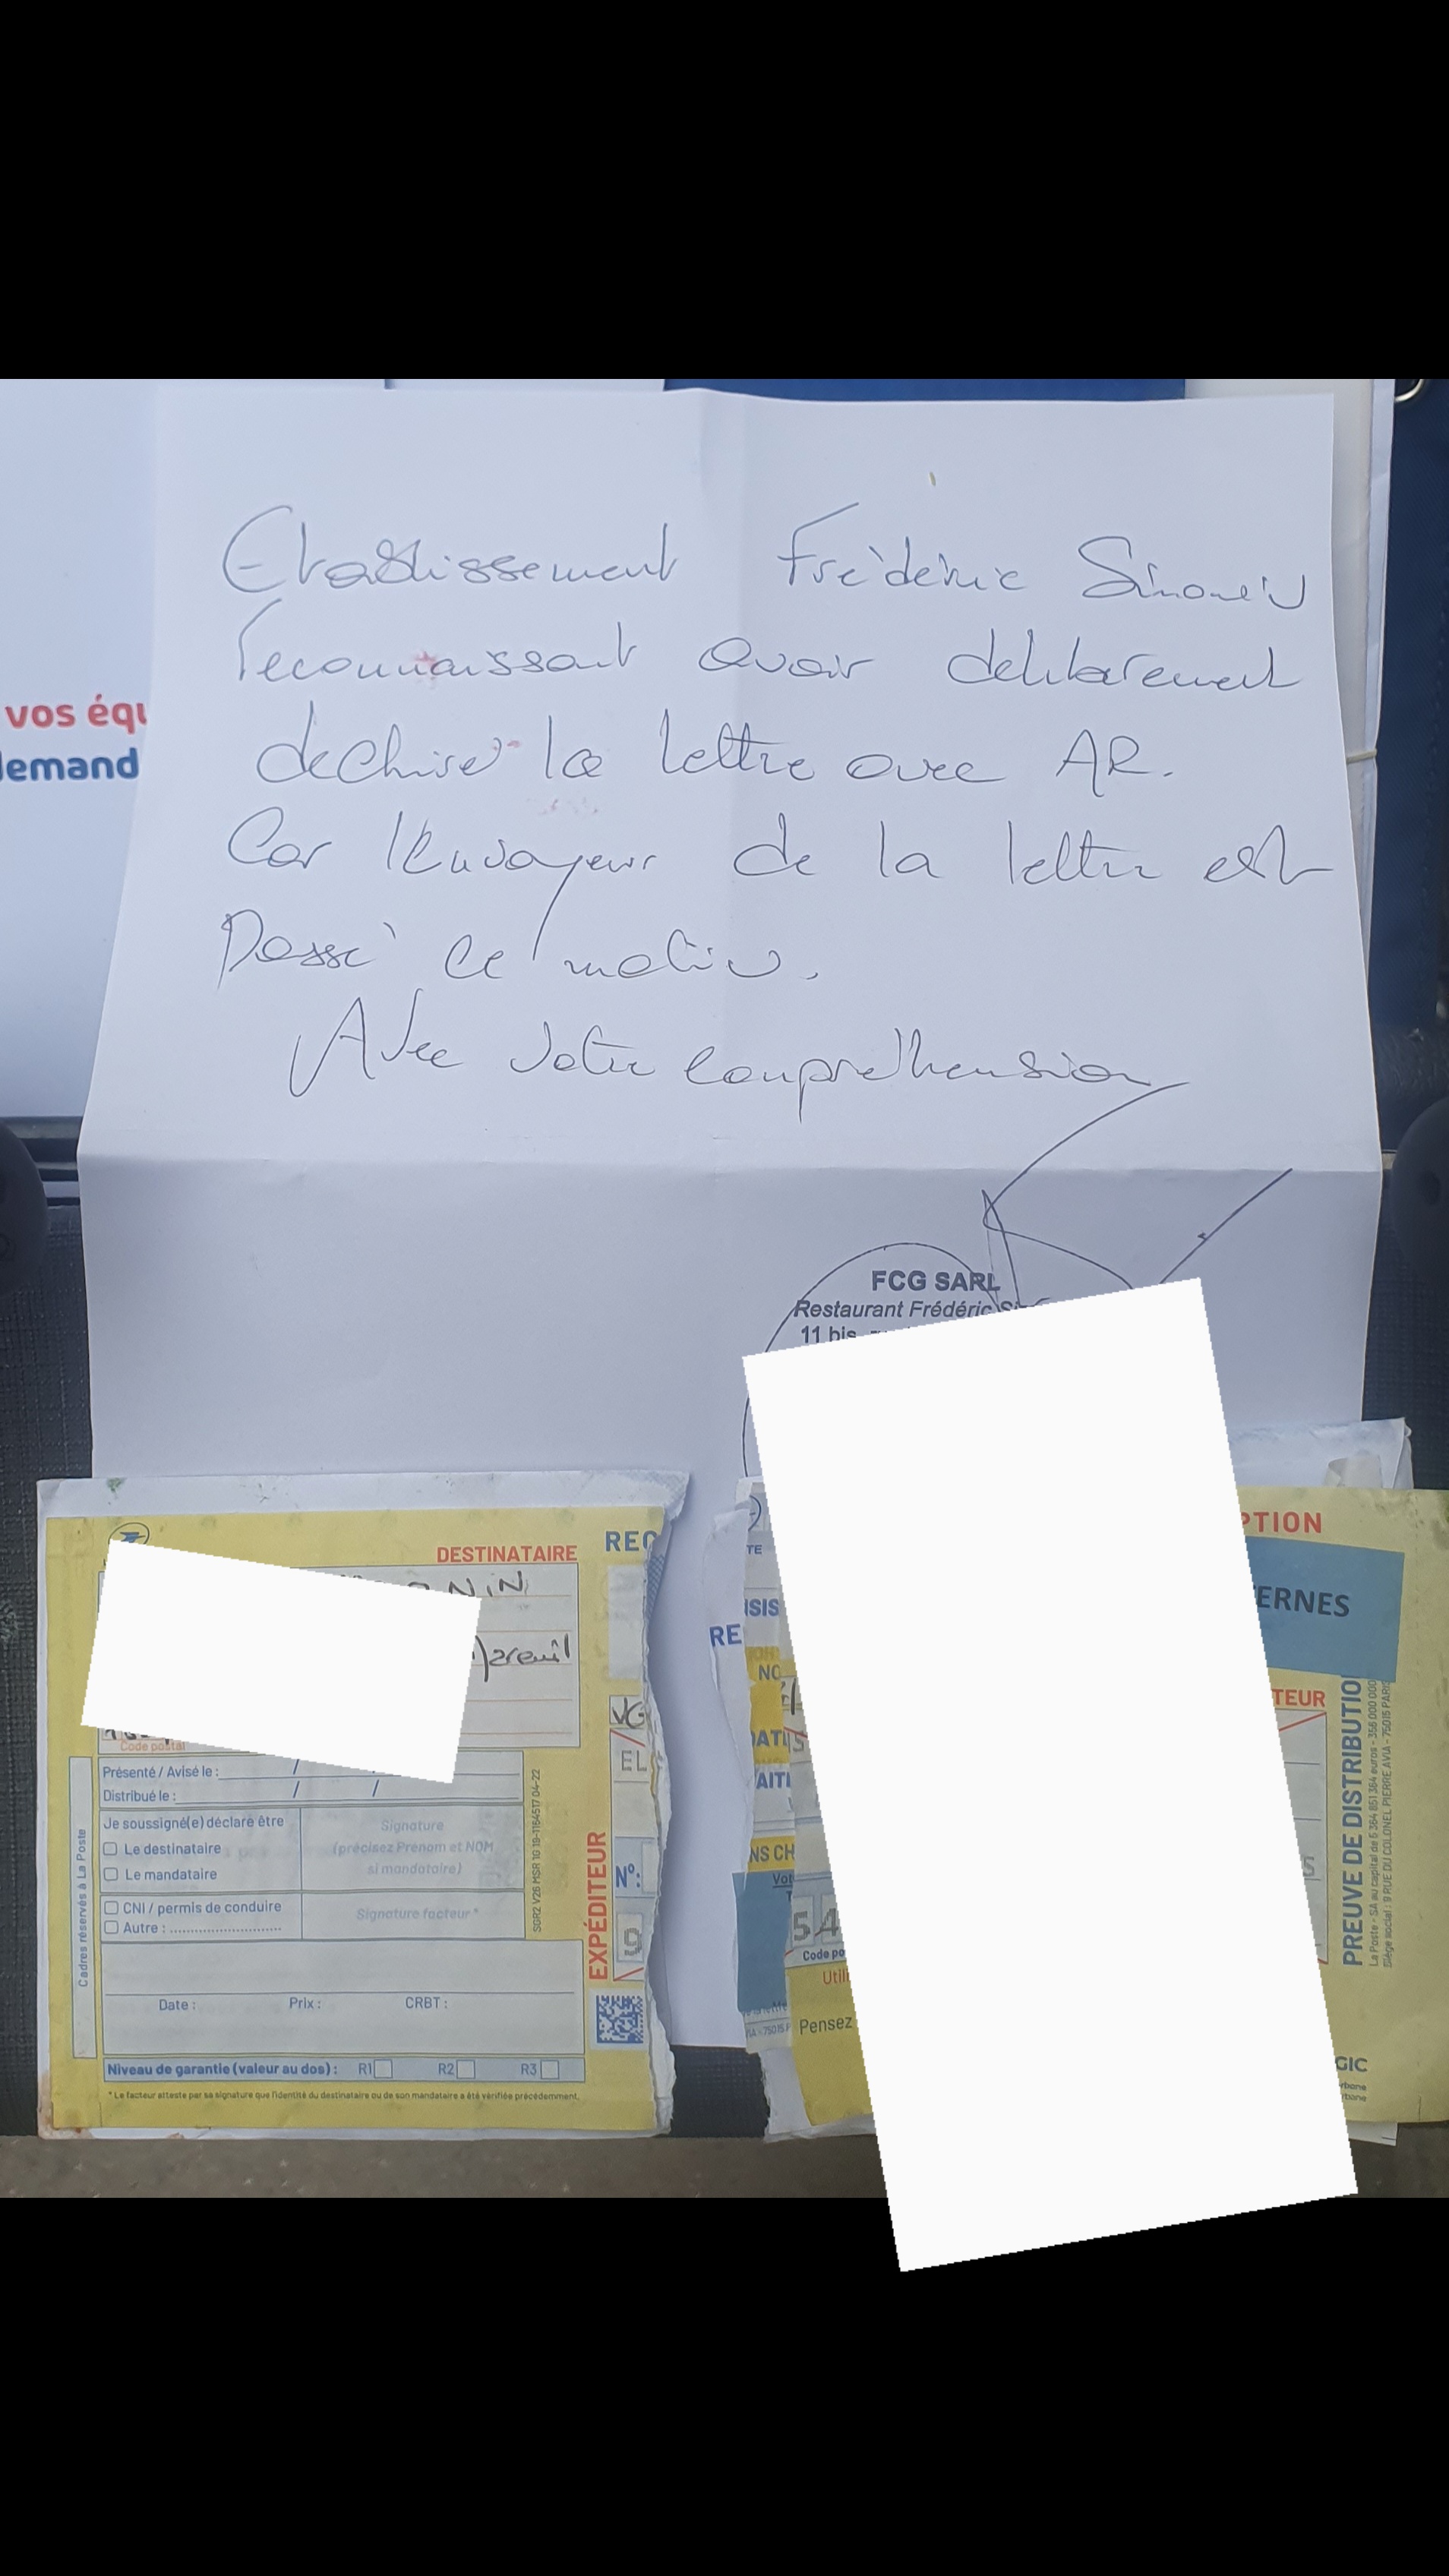 vos équ
demand
Etablissement Frédéric Simonin
reconnaissant avoir deliberement
dechiré la lettre avec AR.
Car l'Envoyeur de la lettre est
Passé ce matin.
Avec votre compréhension
FCG SARL
Restaurant Frédéric Si
11 bis
DESTINATAIRE
REC
NIN
areuil
Code postal
Présenté / Avisé le : / /
Distribué le : / /
Je soussigné(e) déclare être
Le destinataire
Le mandataire
CNI / permis de conduire
Autre :
Signature
(précisez Prénom et NOM
si mandataire)
Signature facteur *
Date : Prix : CRBT :
Niveau de garantie (valeur au dos) : R1 R2 R3
* Le facteur atteste par sa signature que l'identité du destinataire ou de son mandataire a été vérifiée précédemment.
Cadres réservés à La Poste
SGR2 V26 MSR 10 19-1164517 04-22
EXPÉDITEUR
VG
EL
N°:
9
TE
SIS
RE
NC
ATI
AITI
NS CH
Vot
54
Code po
Utili
Pensez
PTION
ERNES
TEUR
5
PREUVE DE DISTRIBUTIO
La Poste - SA au capital de 5 364 851 364 euros - 356 000 000
Siège social : 9 RUE DU COLONEL PIERRE AVIA - 75015 PARIS
GIC
rbone
rbone